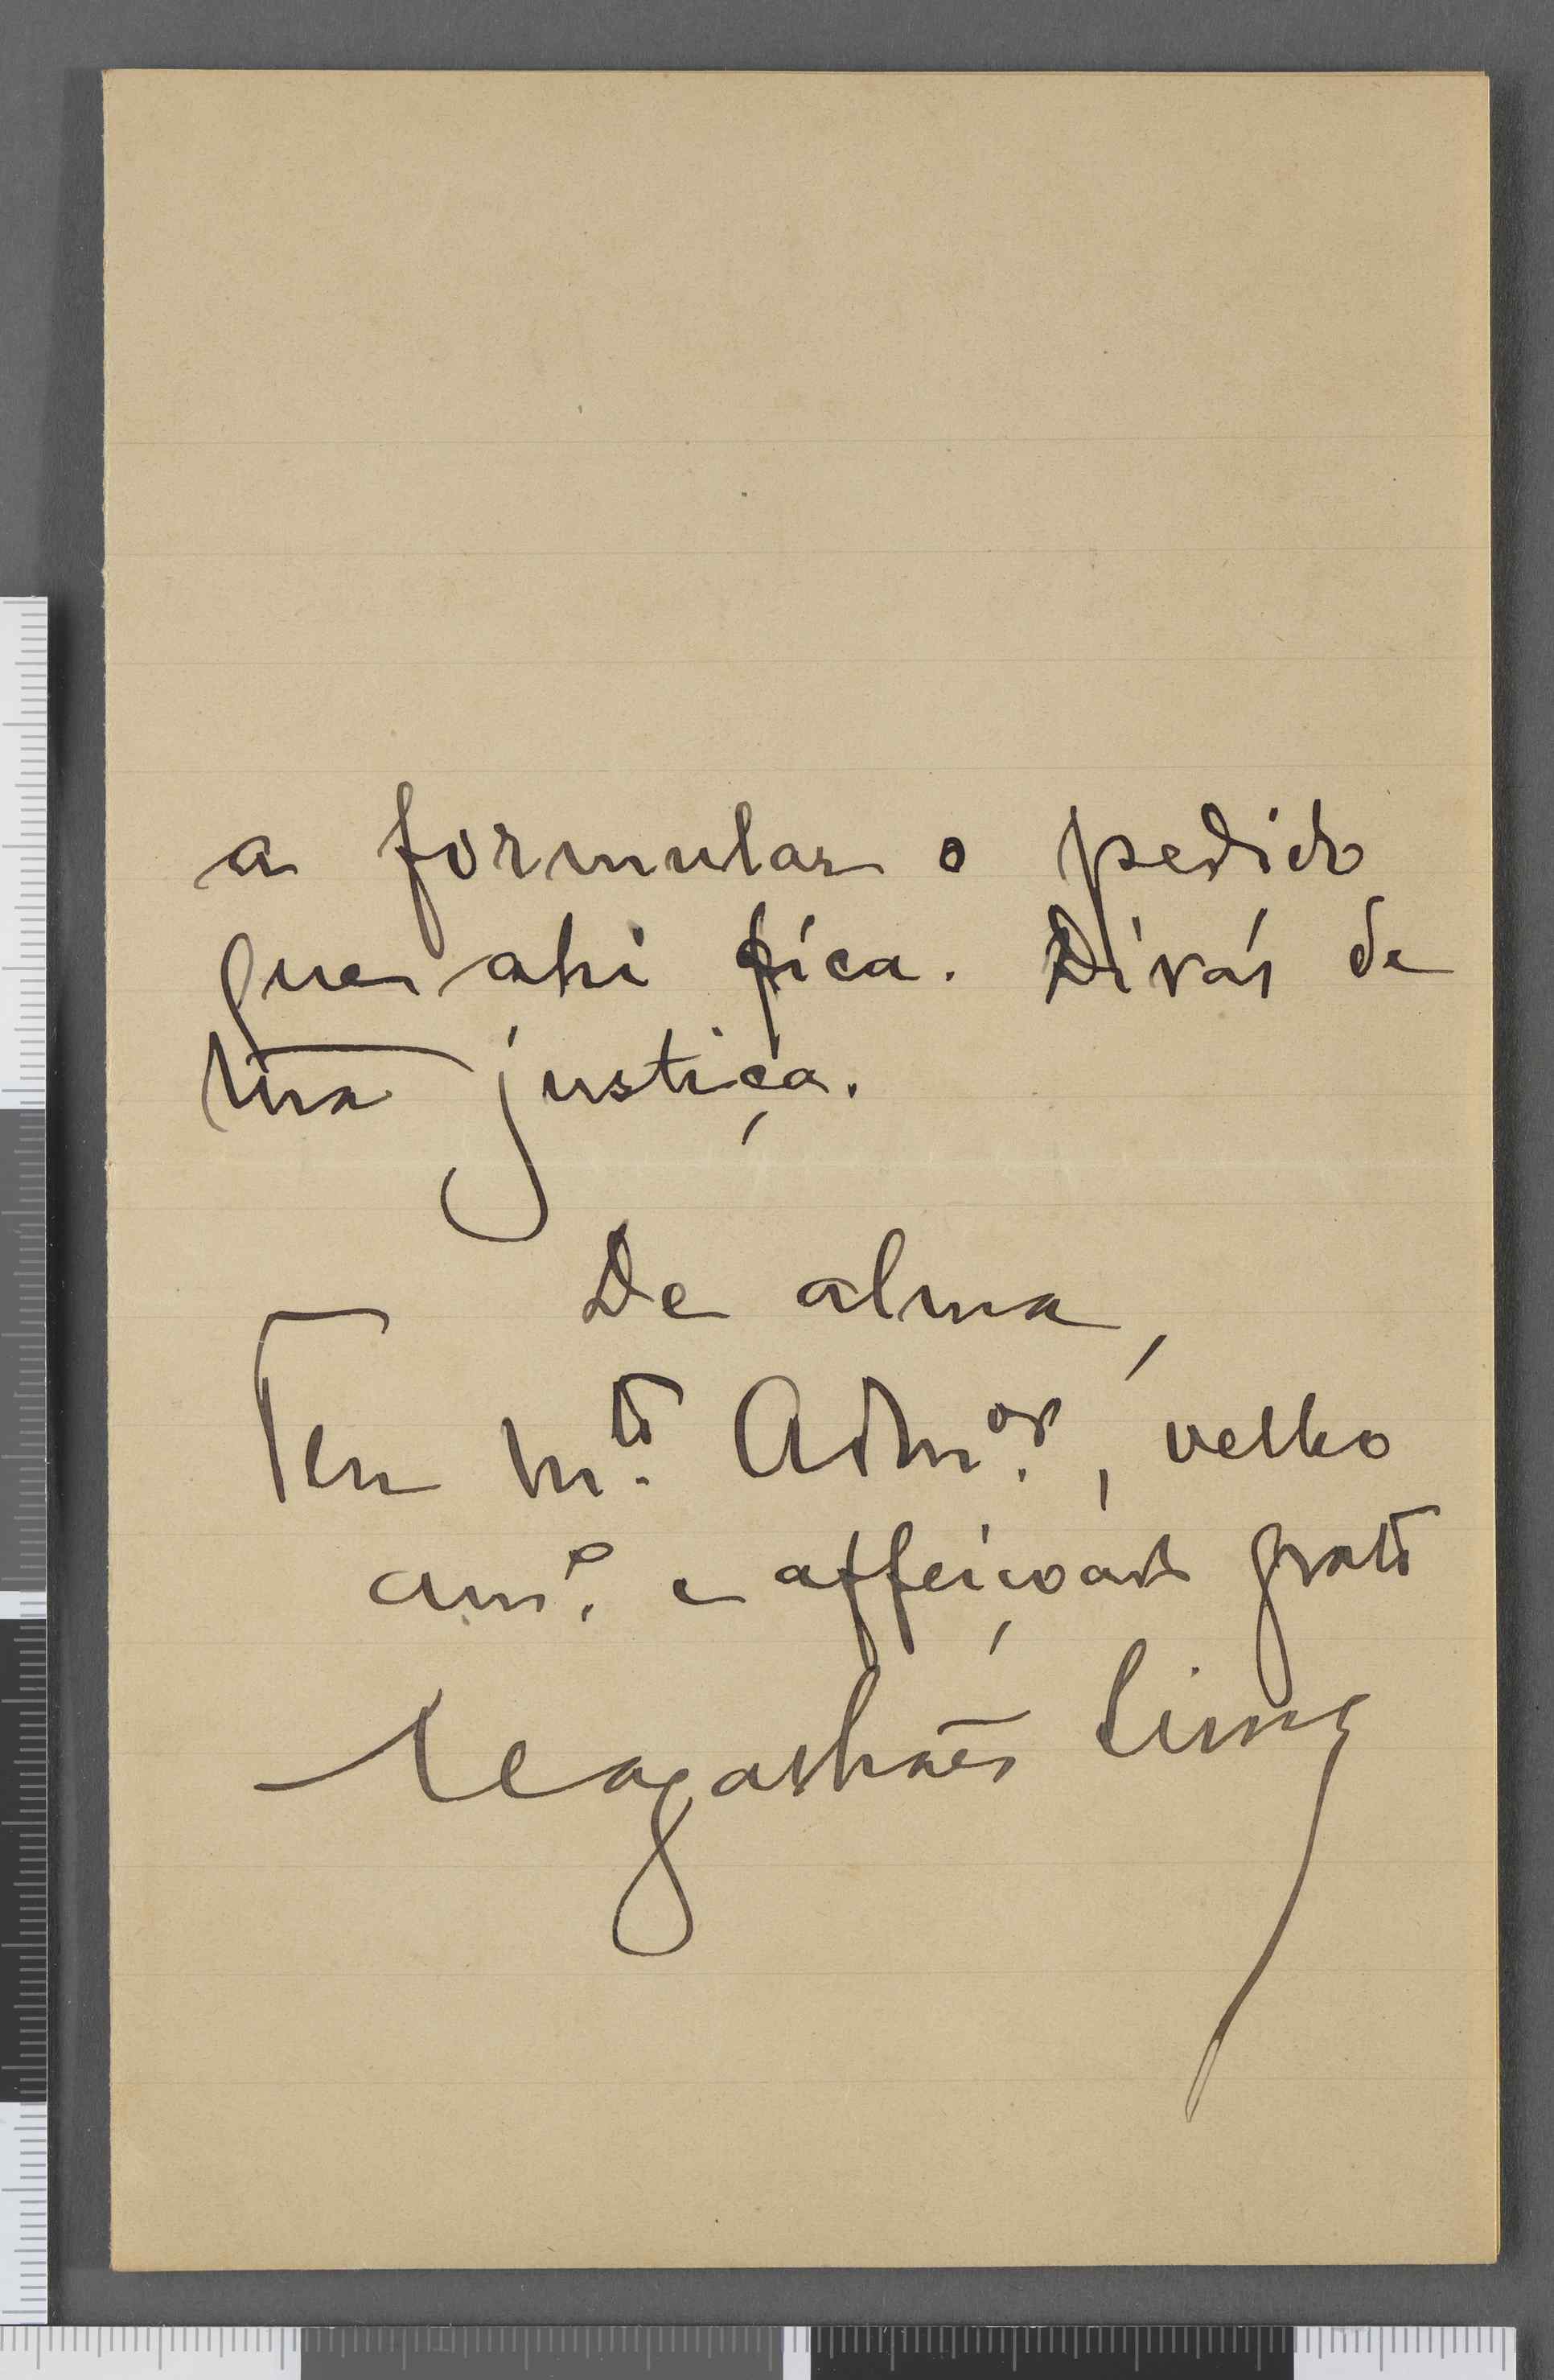 a formular o pedido
que ahi fica. Dirás de
tua justiça.
De alma,
Teu m.to Adm.or, velho
am.o e affeiçoado grato
Magalhães Lima